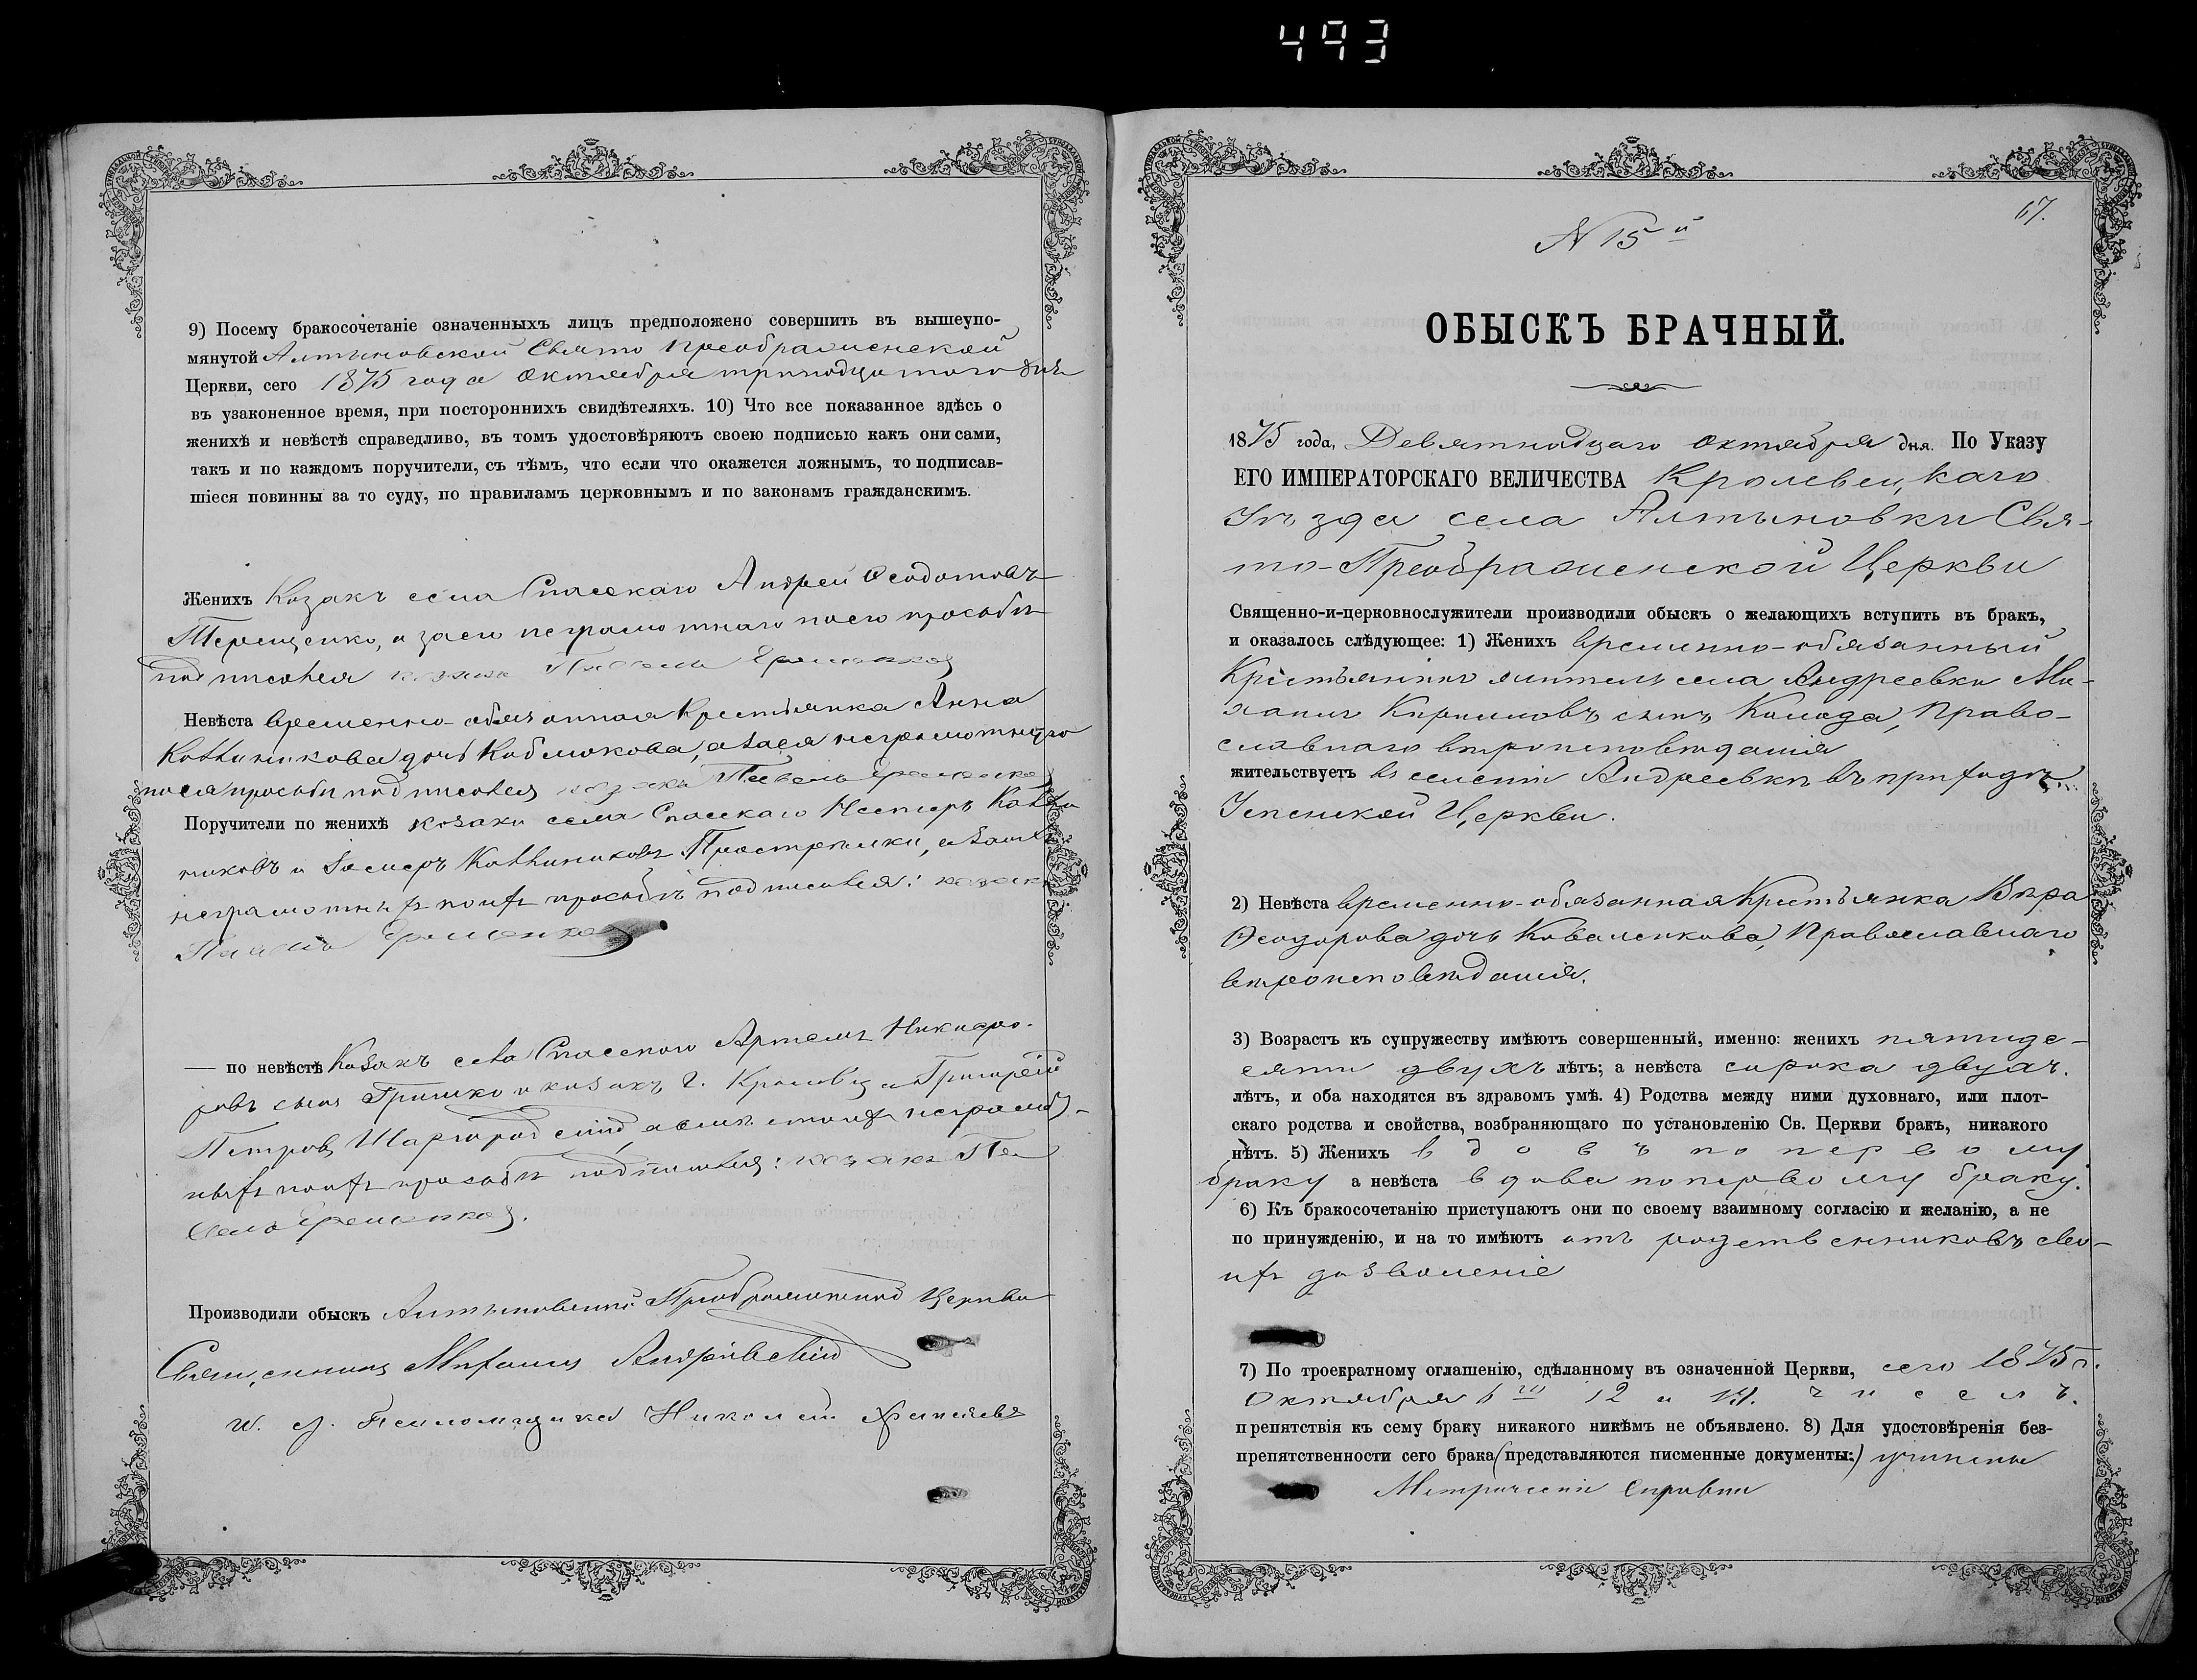 493
9) Посему бракосочетаніе означенныхъ лицъ предположено совершить въ вышеупо-
мянутой Алтыновской Свято Преображенской
Церкви, сего 1875 года Октября тринадцатого дня
въ узаконенное время, при постороннихъ свидѣтеляхъ. 10) Что все показанное здѣсь о
женихѣ и невѣстѣ справедливо, въ томъ удостовѣряютъ своею подписью какъ они сами,
такъ и по каждомъ поручители, съ тѣмъ, что если что окажется ложнымъ, то подписав-
шіеся повинны за то суду, по правиламъ церковнымъ и по законамъ гражданскимъ.
Женихъ Козакъ села Спаскаго Андрей Феодотовъ
Терещенко, а за его неграмотнаго по его прозьбѣ
подписался козакъ Павелъ Ерменков
Невѣста временно-обязанная Крестьянка Анна
дочь а за ея неграмотную
по ея прозьби подписался козакъ Павелъ
Поручители по женихѣ козаки села Спаскаго Нестеръ
никовъ и
неграмотныхъ по ихъ прозьбѣ подписался: козакъ
Павелъ
— по невѣстѣ Козакъ села Спаского Артемъ Никифо-
ровъ сынъ Гришко и козакъ г. Кролевца Григорій
Петровъ Шаргородскій, а вмѣсто ихъ неграмот-
ныхъ по ихъ прозьбѣ подписался: козакъ Па
велъ
Производили обыскъ Алтыновской Преображенской Церкви
Священникъ Михаилъ Андріевскій
И. д. Псаломщика Николай
67.
N 15й
ОБЫСКЪ БРАЧНЫЙ.
1875 года, Девятнадцаго Октября дня. По Указу
ЕГО ИМПЕРАТОРСКАГО ВЕЛИЧЕСТВА Кролевецкаго
Уѣзда села Алтыновки Свя-
то-Преображенской Церкви
Священно-и-церковнослужители производили обыскъ о желающихъ вступить въ бракъ,
и оказалось слѣдующее: 1) Женихъ временно-обязанный
Крестьянинъ житель села Андреевки Ми-
хаилъ Кириловъ сынъ Коляда, Право-
славнаго вѣроисповѣданія
жительствуетъ въ селеніи Андреевки въ приходѣ
Успенской Церкви.
2) Невѣста временно-обязанная Крестьянка Вѣра
Феодорова дочь Коваленкова, Православнаго
вѣроисповѣданія.
3) Возрастъ къ супружеству имѣютъ совершенный, именно: женихъ пятиде-
сяти двухъ лѣтъ; а невѣста сорока двухъ.
лѣтъ, и оба находятся въ здравомъ умѣ. 4) Родства между ними духовнаго, или плот-
скаго родства и свойства, возбраняющаго по установленію Св. Церкви бракъ, никакого
нѣтъ. 5) Женихъ вдовъ по первому
браку а невѣста вдова по первому браку.
6) Къ бракосочетанію приступаютъ они по своему взаимному согласію и желанію, а не
по принужденію, и на то имѣютъ отъ родственниковъ сво-
ихъ дозволеніе
7) По троекратному оглашенію, сдѣланному въ означенной Церкви, сего 1875 г.
Октября 12 и чиселъ.
препятствія къ сему браку никакого никѣмъ не объявлено. 8) Для удостовѣренія без-
препятственности сего брака (представляются писменные документы:) учинены
Метрическіи Справки